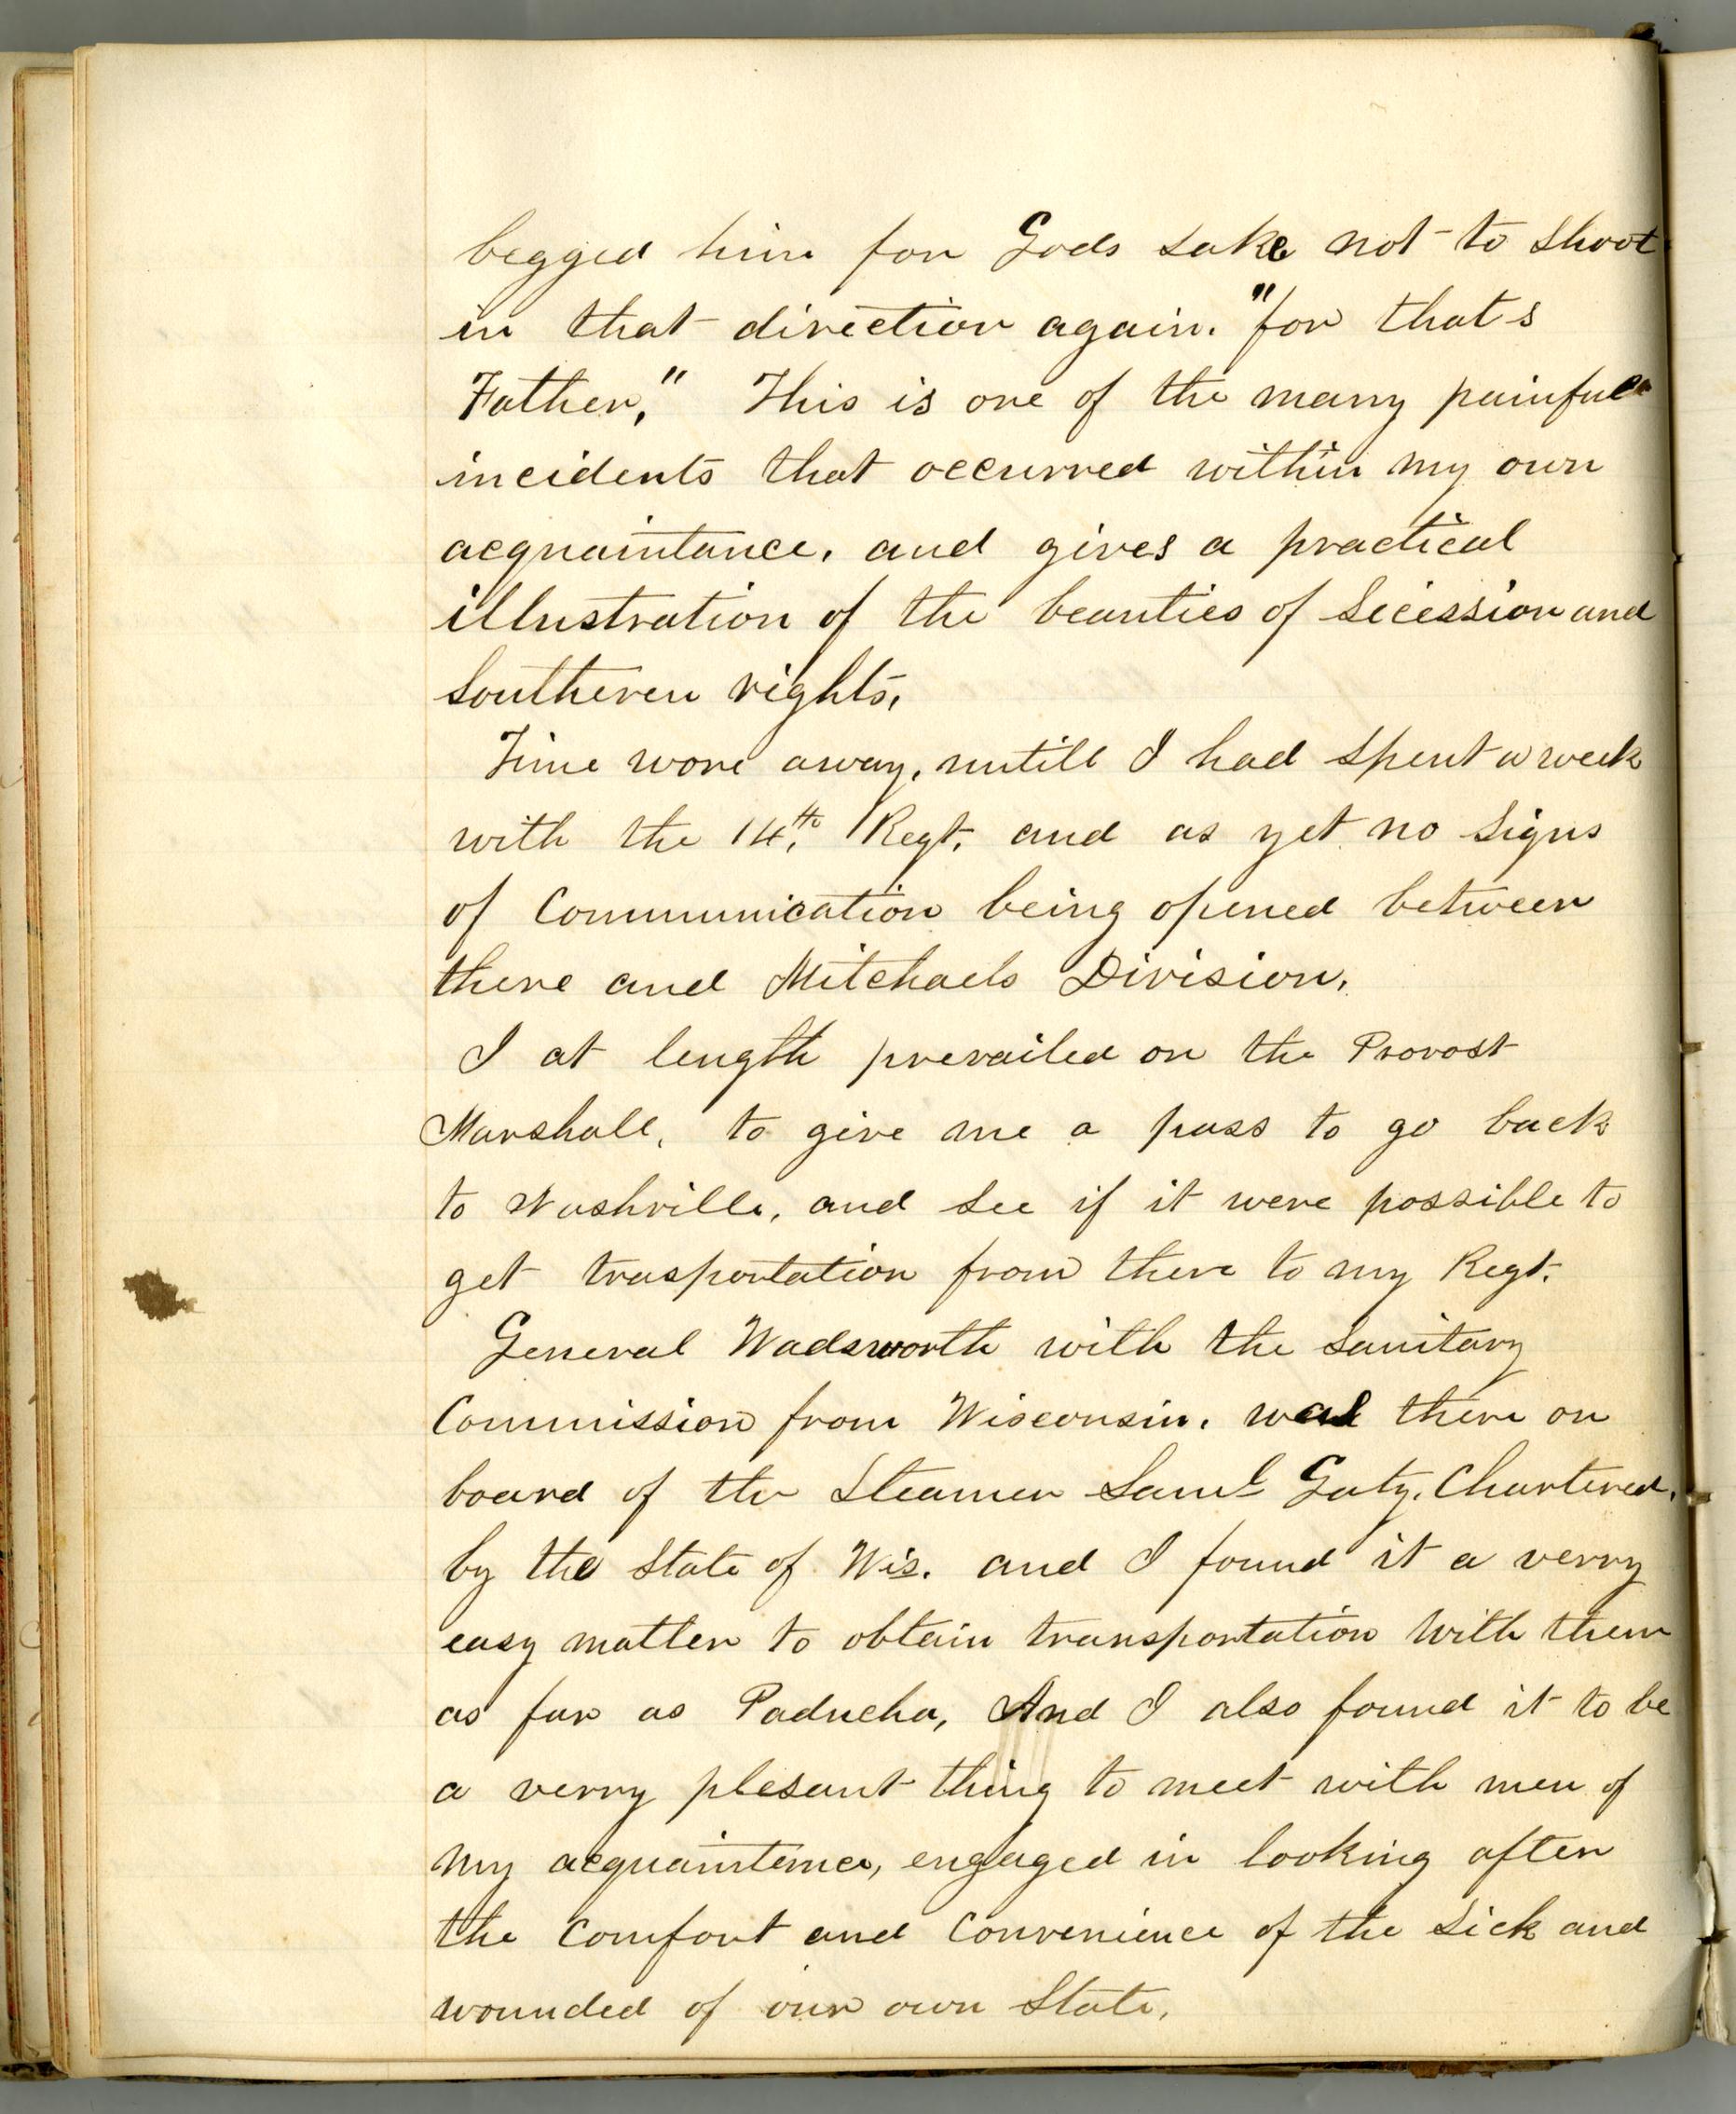 begged him for Gods sake not to shoot
in that direction again. "for that's
Father," This is one of the many painfull
incidents that occurred within my own
acquaintance, and gives a practical
illustration of the beauties of Secession and
Southeren rights.
Time wore away, untill I had spent a week
with the 14th, Regt, and as yet no signs
of Communication being opened between
there and Mitchaels Division.
I at length prevailed on the Provost
Marshall, to give me a pass to go back
to Nashville, and see if it were possible to
get trasportation from there to my Regt.
General Wadsworth with the Sanitary
Commission from Wisconsin, was there on
board of the Steamer Saml Gaty, Chartered,
by the State of Wis. and I found it a verry
easy matter to obtain transportation with them
as far as Paducha, And I also found it to be
a verry plesant thing to meet with men of
my acquaintence, engaged in looking after
the Comfort and Convenience of the Sick and
wounded of our own State,